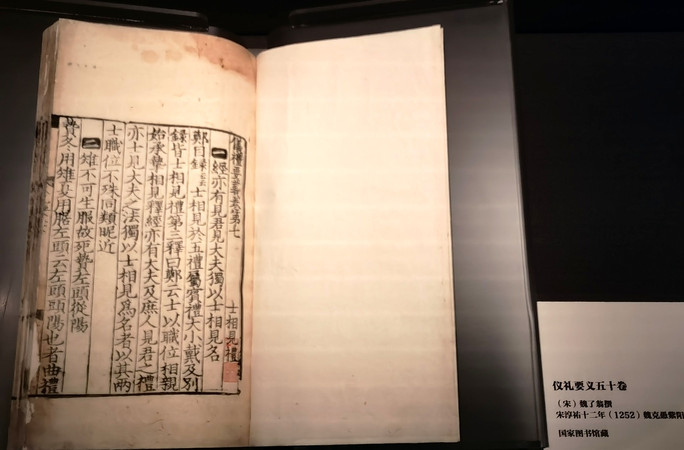 儀禮要義卷第七
士相見禮
一 經亦有見君見大夫獨以士相見名
鄭目錄云士相見於五禮屬賓禮大小戴及別
錄皆士相見禮第三釋曰鄭云士以職位相親
始承摯相見釋經亦有大夫及庶人見君之禮
亦士見大夫之法獨以士相見爲名者以其兩
士職位不殊同類昵近
二 雉不可生服故死贄左頭從陽
贄冬用雉夏用腒左頭云左頭頭陽也者曲禮
仪礼要义五十卷
（宋）魏了翁撰
宋淳祐十二年（1252）魏克愚紫阳
国家图书馆藏